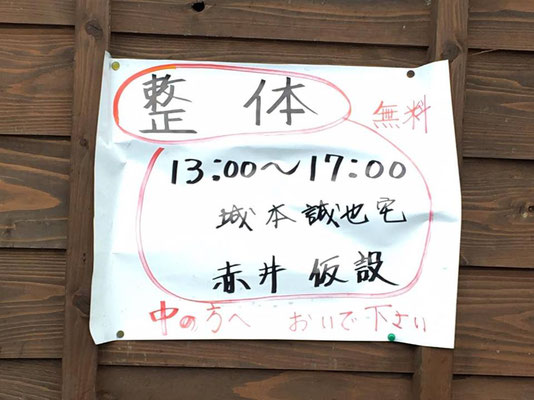 整体
無料
13:00〜17:00
城本誠也宅
赤井仮設
中の方へ おいで下さい